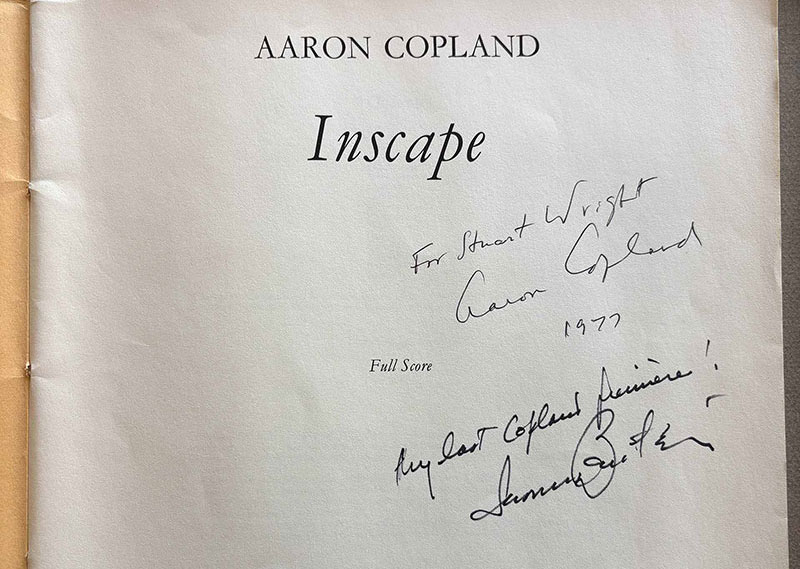 AARON COPLAND
Inscape
For Stuart Wright
Aaron Copland
1977
Full Score
My last Copland première!